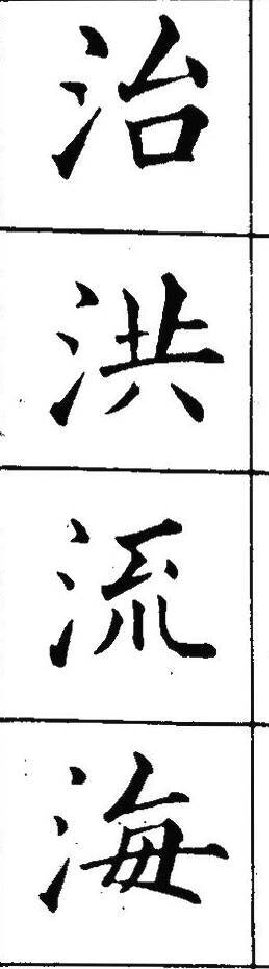 治
洪
流
海